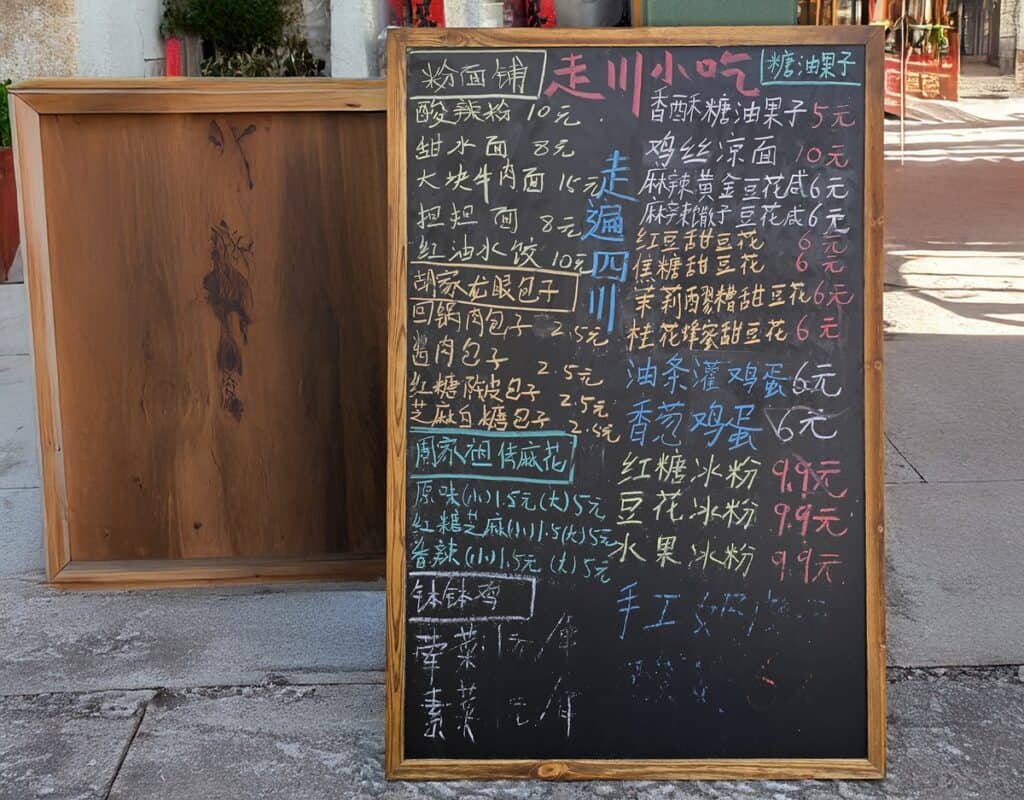 走川小吃
走遍四川
粉面铺
酸辣粉 10元
甜水面 8元
大块牛肉面 15元
担担面 8元
红油水饺 10元
胡家龙眼包子
回锅肉包子 2.5元
酱肉包子 2.5元
红糖陈皮包子 2.5元
芝麻白糖包子 2.5元
周家祖传麻花
原味(小)1.5元(大)5元
红糖芝麻(小)1.5(大)5元
香辣(小)1.5元(大)5元
钵钵鸡
荤菜1元/串
素菜 元/串
糖油果子
香酥糖油果子 5元
鸡丝凉面 10元
麻辣黄金豆花咸 6元
麻辣馓子豆花咸 6元
红豆甜豆花 6元
焦糖甜豆花 6元
茉莉醪糟甜豆花 6元
桂花蜂蜜甜豆花 6元
油条灌鸡蛋 6元
香葱鸡蛋 6元
红糖冰粉 9.9元
豆花冰粉 9.9元
水果冰粉 9.9元
手工